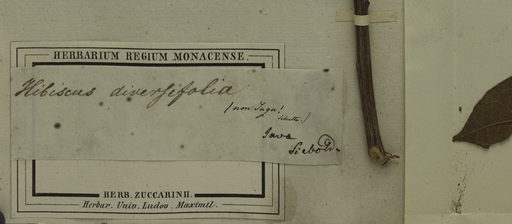 HERBARIUM REGIUM MONACENSE.
Hibiscus diversifolia
(non Jacq!
Java
Siebold.
HERB. ZUCCARINII.
Herbar. Univ. Ludov. Maximil.